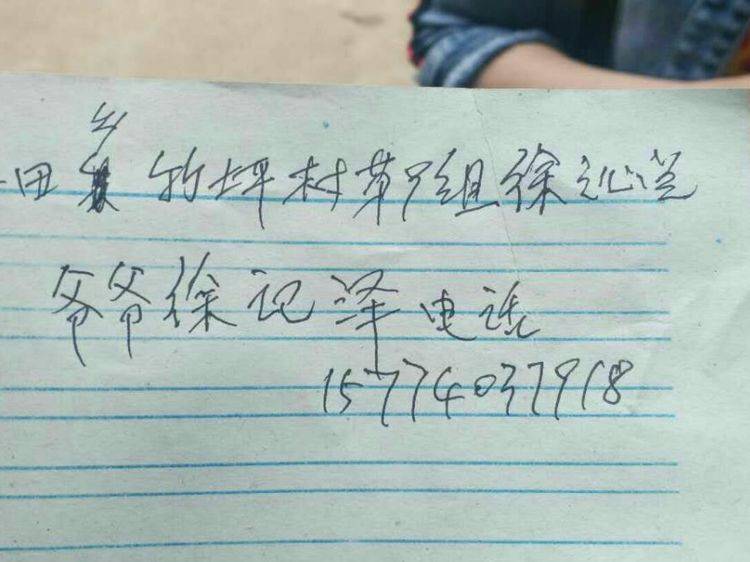 田乡竹坪村第9组徐沁
爷爷徐记泽电话
15774037918